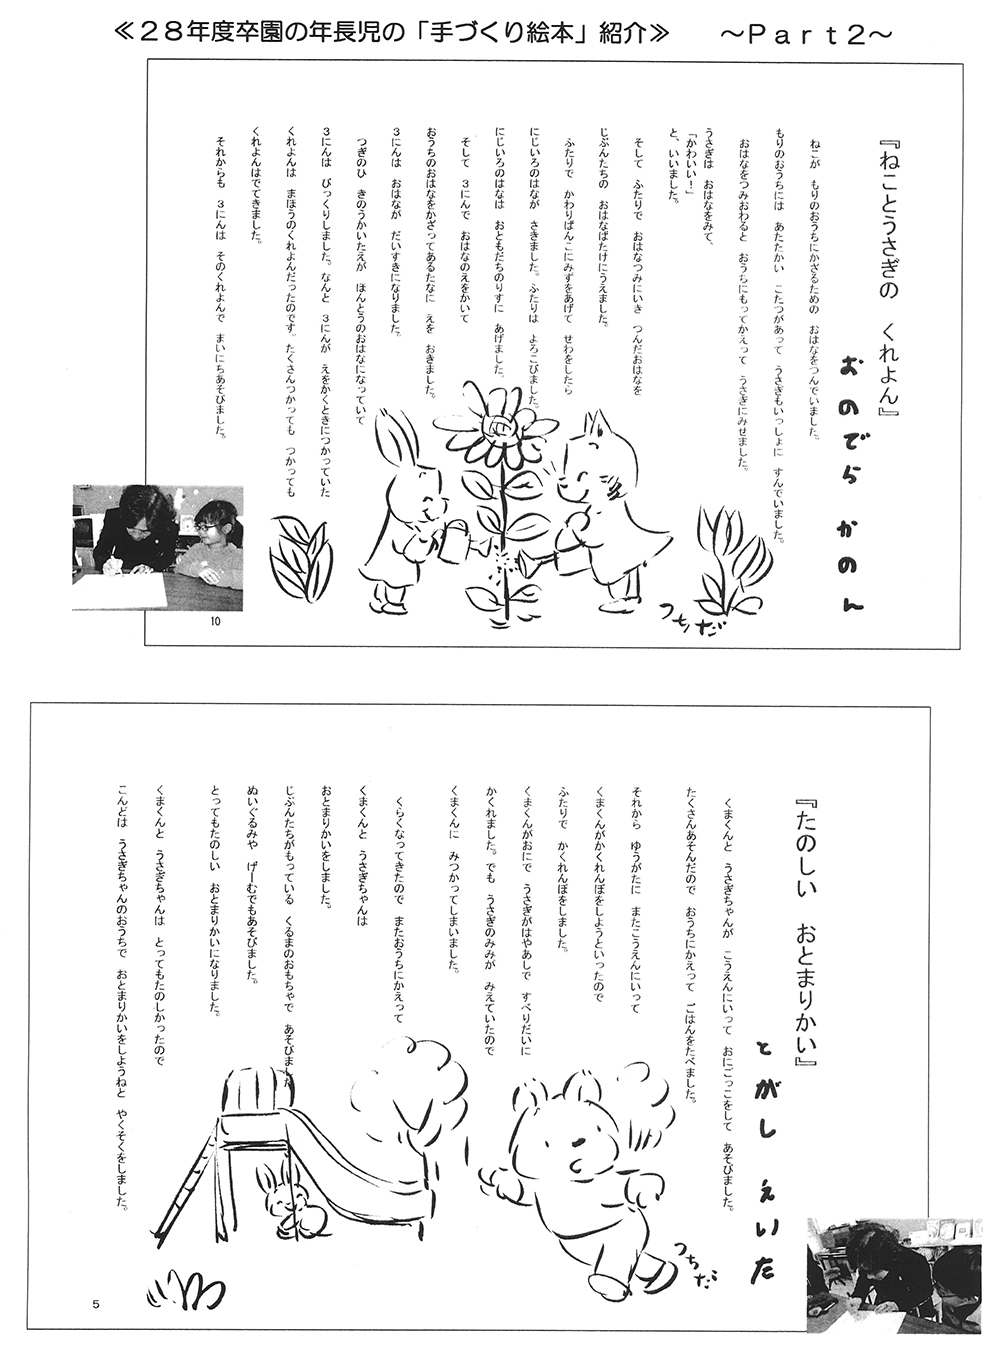 ≪２８年度卒園の年長児の「手づくり絵本」紹介≫　～Ｐａｒｔ２～
『ねことうさぎの　くれよん』
おのでら　かのん
ねこが　もりのおうちにかざるための　おはなをつんでいました。
もりのおうちには　あたたかい　こたつがあって　うさぎもいっしょに　すんでいました。
おはなをつみおわると　おうちにもってかえって　うさぎにみせました。
うさぎは　おはなをみて、
「かわいい！」
と、いいました。
そして　ふたりで　おはなつみにいき　つんだおはなを
じぶんたちの　おはなばたけにうえました。
ふたりで　かわりばんこにみずをあげて　せわをしたら
にじいろのはなが　さきました。ふたりは　よろこびました。
にじいろのはなは　おともだちのりすに　あげました。
そして　３にんで　おはなのえをかいて
おうちのおはなをかざってあるたなに　えを　おきました。
３にんは　おはなが　だいすきになりました。
つぎのひ　きのうかいたえが　ほんとうのおはなになっていて
３にんは　びっくりしました。なんと　３にんが　えをかくときにつかっていた
くれよんは　まほうのくれよんだったのです。たくさんつかっても　つかっても
くれよんはでてきました。
それからも　３にんは　そのくれよんで　まいにちあそびました。
つちだ
10
『たのしい　おとまりかい』
とがし　えいた
くまくんと　うさぎちゃんが　こうえんにいって　おにごっこをして　あそびました。
たくさんあそんだので　おうちにかえって　ごはんをたべました。
それから　ゆうがたに　またこうえんにいって
くまくんがかくれんぼをしようといったので
ふたりで　かくれんぼをしました。
くまくんがおにで　うさぎがはやあしで　すべりだいに
かくれました。でも　うさぎのみみが　みえていたので
くまくんに　みつかってしまいました。
くらくなってきたので　またおうちにかえって
くまくんと　うさぎちゃんは
おとまりかいをしました。
じぶんたちがもっている　くるまのおもちゃで　あそびました
ぬいぐるみや　げーむでもあそびました。
とってもたのしい　おとまりかいになりました。
くまくんと　うさぎちゃんは　とってもたのしかったので
こんどは　うさぎちゃんのおうちで　おとまりかいをしようねと　やくそくをしました。
つちだ
5